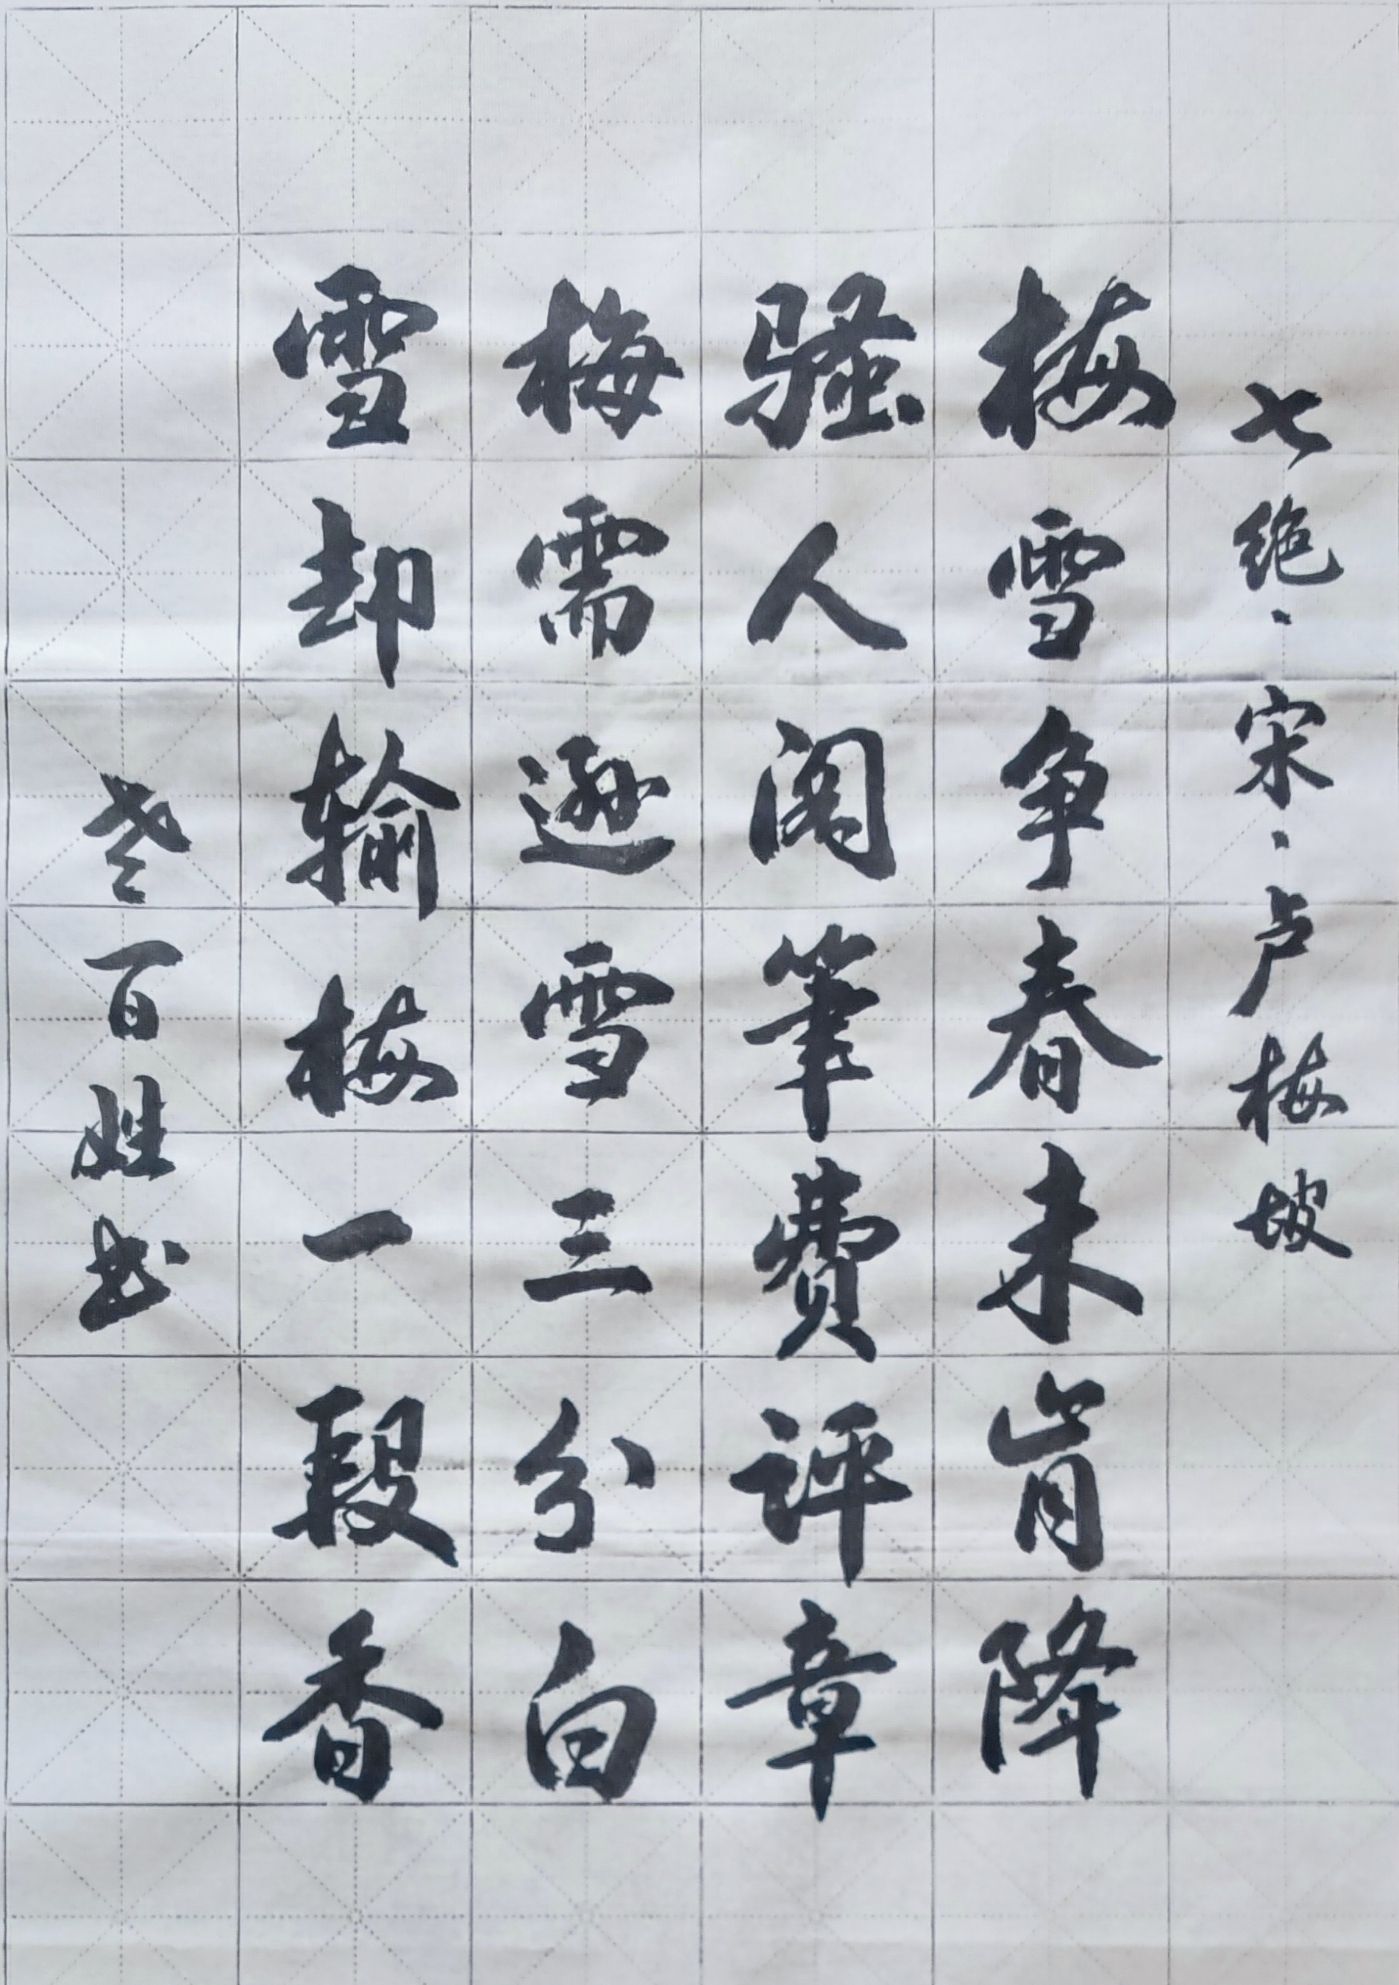 七绝·宋·卢梅坡
梅雪争春未肯降
骚人阁筆費评章
梅需逊雪三分白
雪却输梅一段香
老百姓书